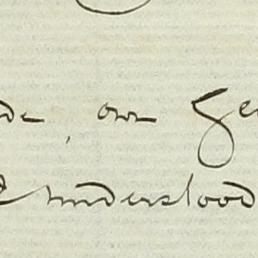 de our Ge
& understood